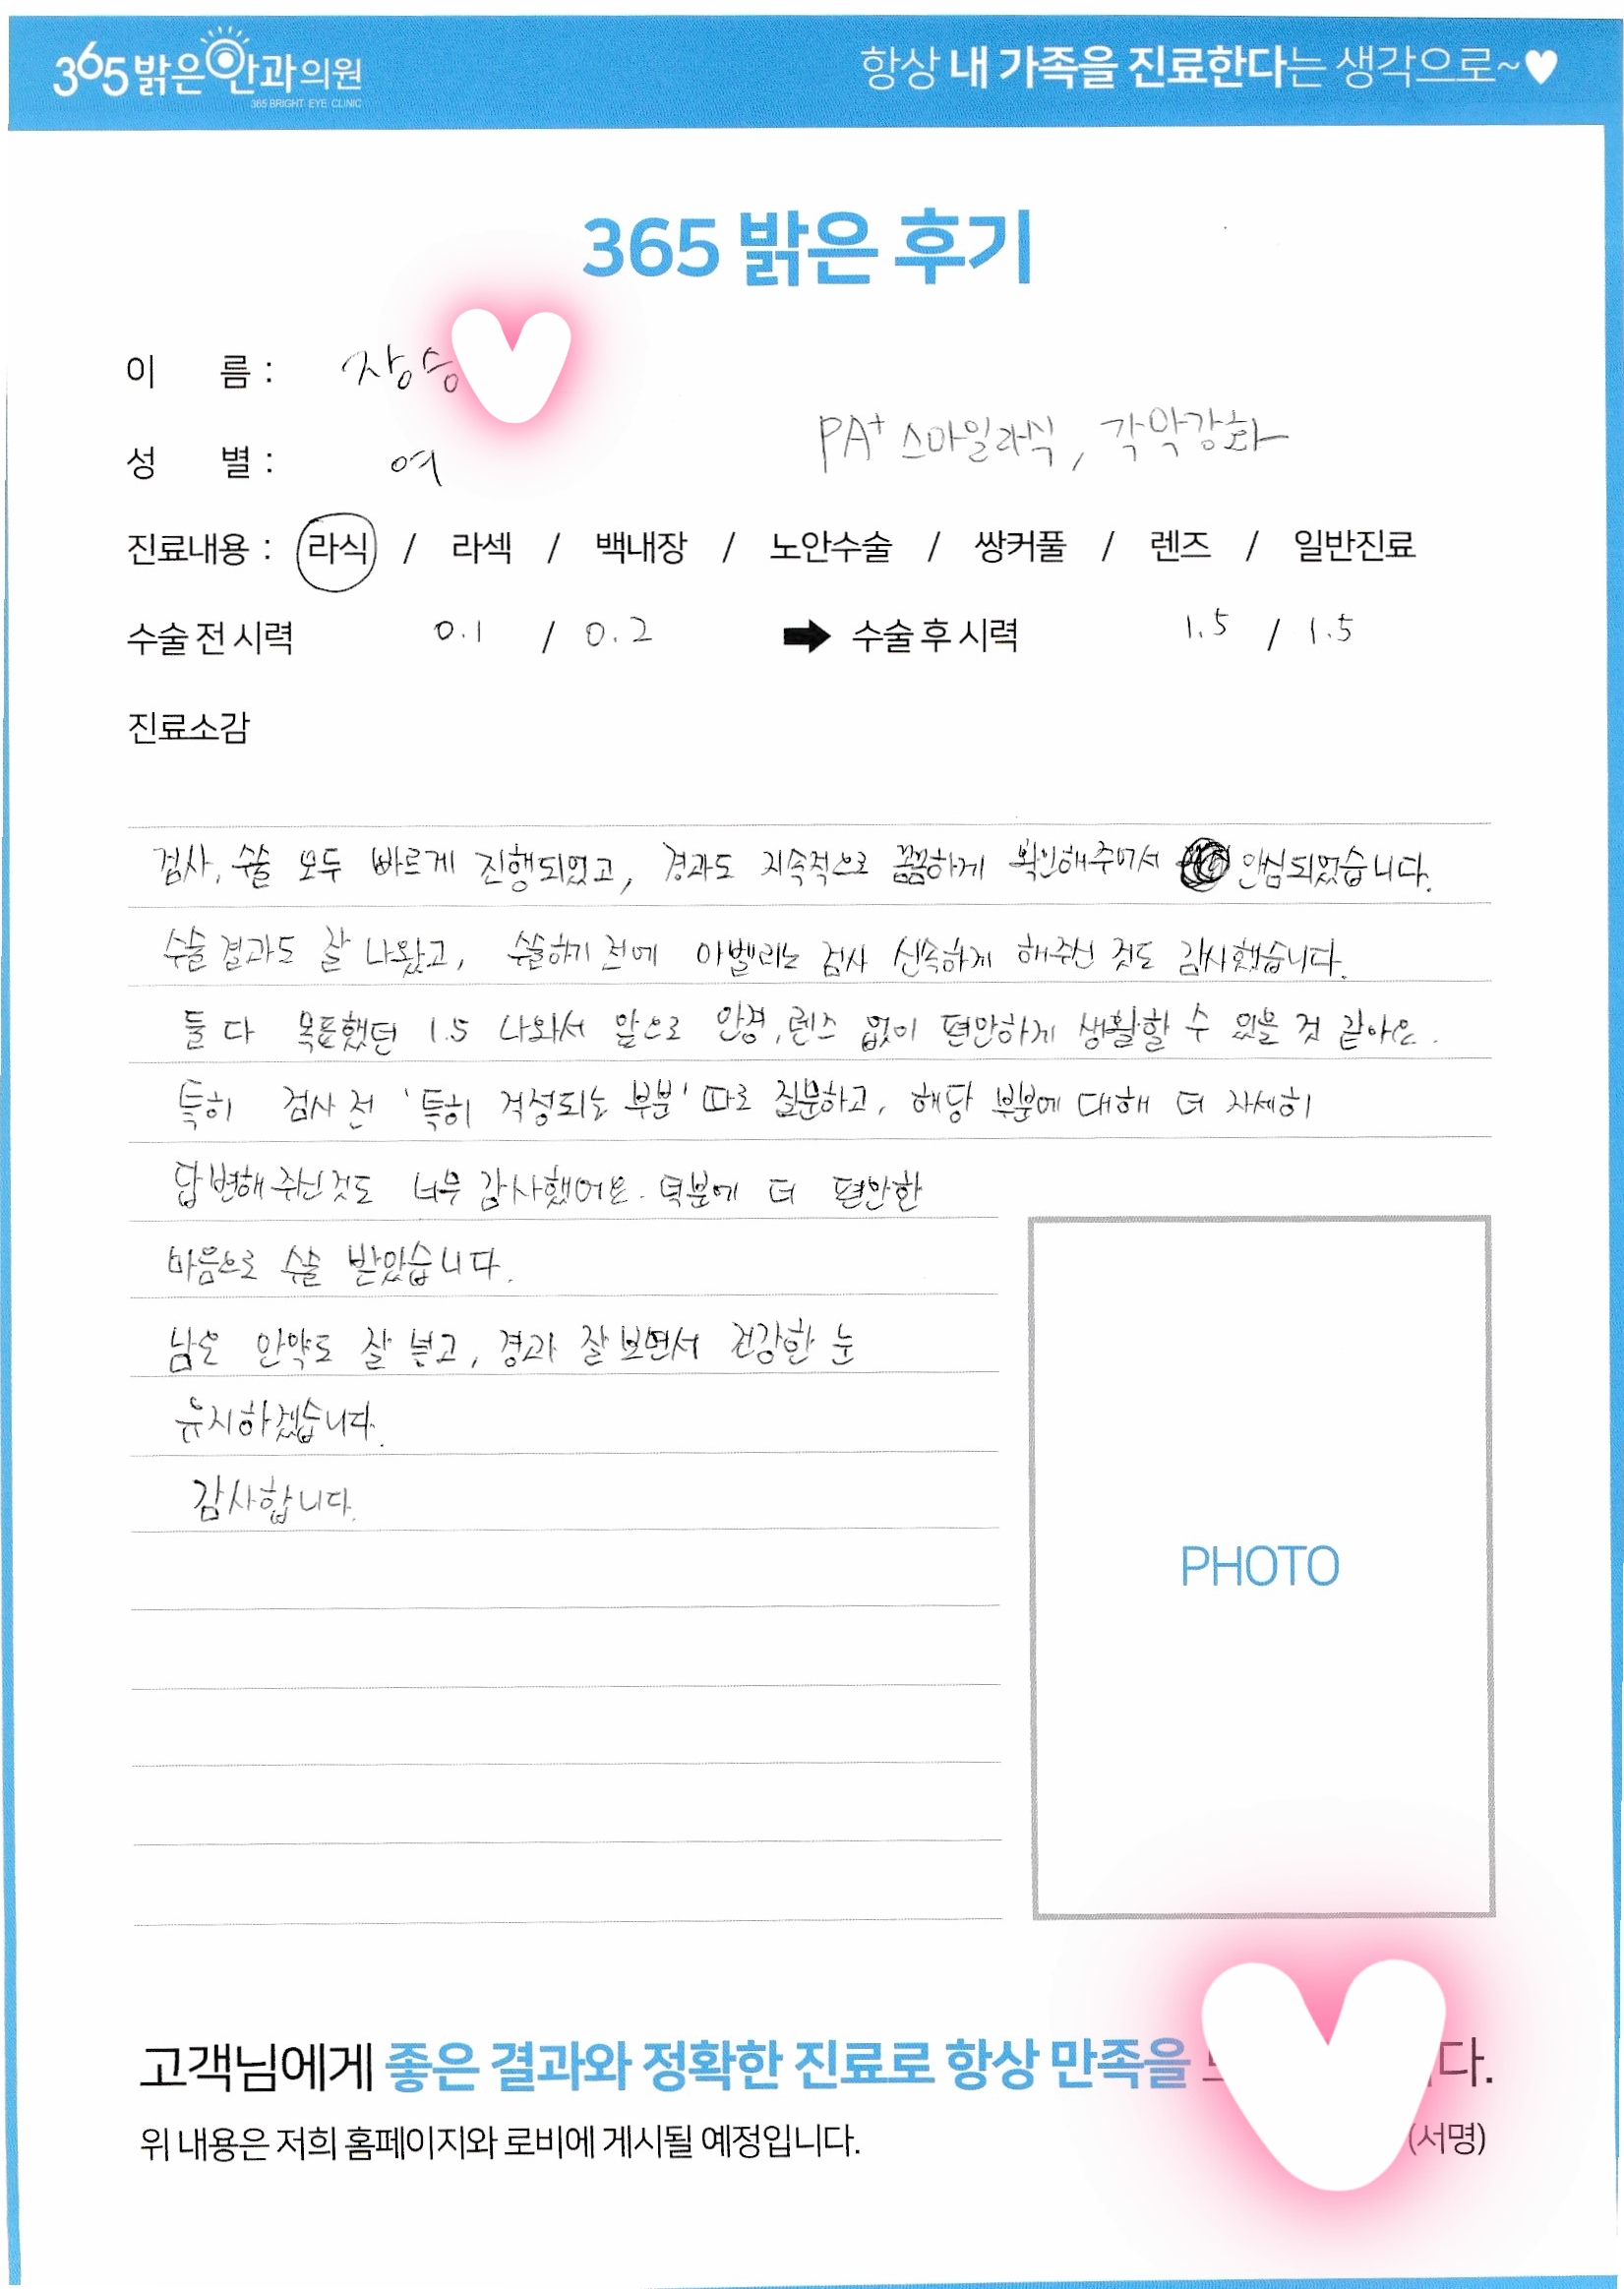 365밝은안과의원
365 BRIGHT EYE CLINIC
항상 내 가족을 진료한다는 생각으로~♥
365 밝은 후기
이 름 : 장승
성 별 : 여
PA+ 스마일라식, 각막강화
진료내용 : 라식 / 라섹 / 백내장 / 노안수술 / 쌍커풀 / 렌즈 / 일반진료
수술 전 시력 0.1 / 0.2 ➡ 수술 후 시력 1.5 / 1.5
진료소감
검사, 수술 모두 빠르게 진행되었고, 경과도 지속적으로 꼼꼼하게 확인해주며서 안심되었습니다.
수술 결과도 잘 나왔고, 수술하기 전에 아벨리노 검사 신속하게 해주신 것도 감사했습니다.
둘 다 목표했던 1.5 나와서 앞으로 안경, 렌즈 없이 편안하게 생활할 수 있을 것 같아요.
특히 검사 전 '특히 걱정되는 부분' 따로 질문하고, 해당 부분에 대해 더 자세히
답변해 주신것도 너무 감사했어요. 덕분에 더 편안한
마음으로 수술 받았습니다.
남은 안약도 잘 넣고, 경과 잘 보면서 건강한 눈
유지하겠습니다.
감사합니다.
PHOTO
고객님에게 좋은 결과와 정확한 진료로 항상 만족을 다.
위 내용은 저희 홈페이지와 로비에 게시될 예정입니다. (서명)